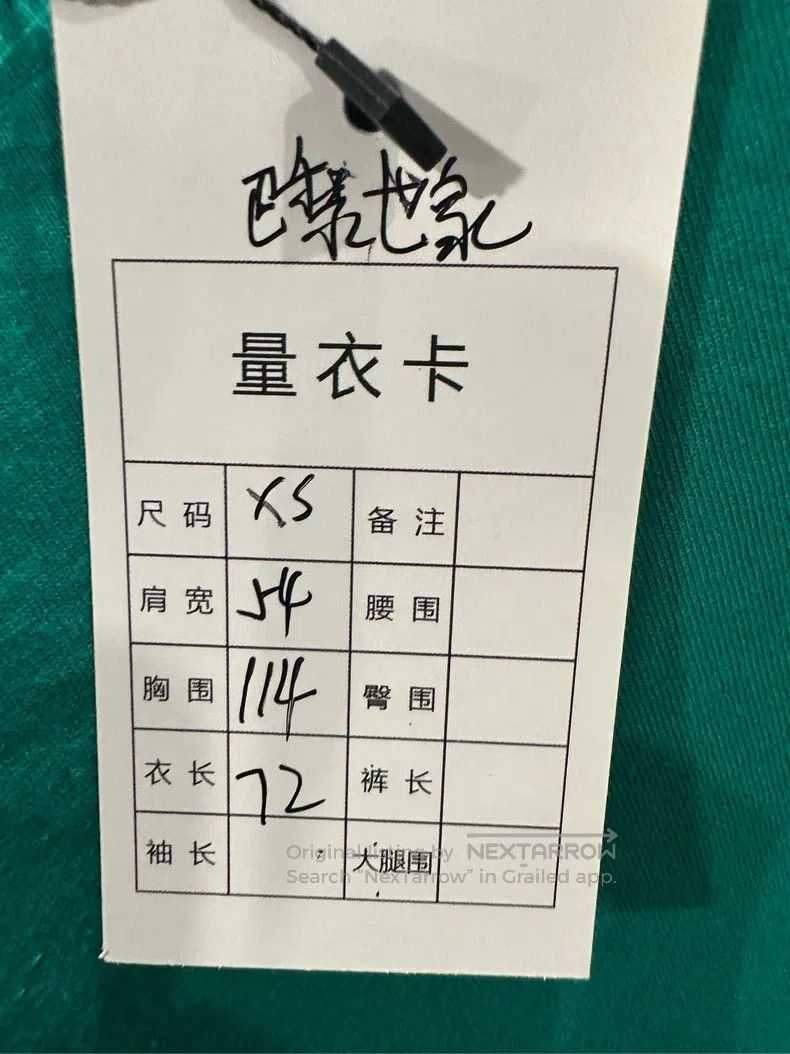 巴黎世家
量衣卡
尺码 XS 备注
肩宽 54 腰围
胸围 114 臀围
衣长 72 裤长
袖长 大腿围
Original listing by NEXTARROW
Search "NexTarrow" in Grailed app.